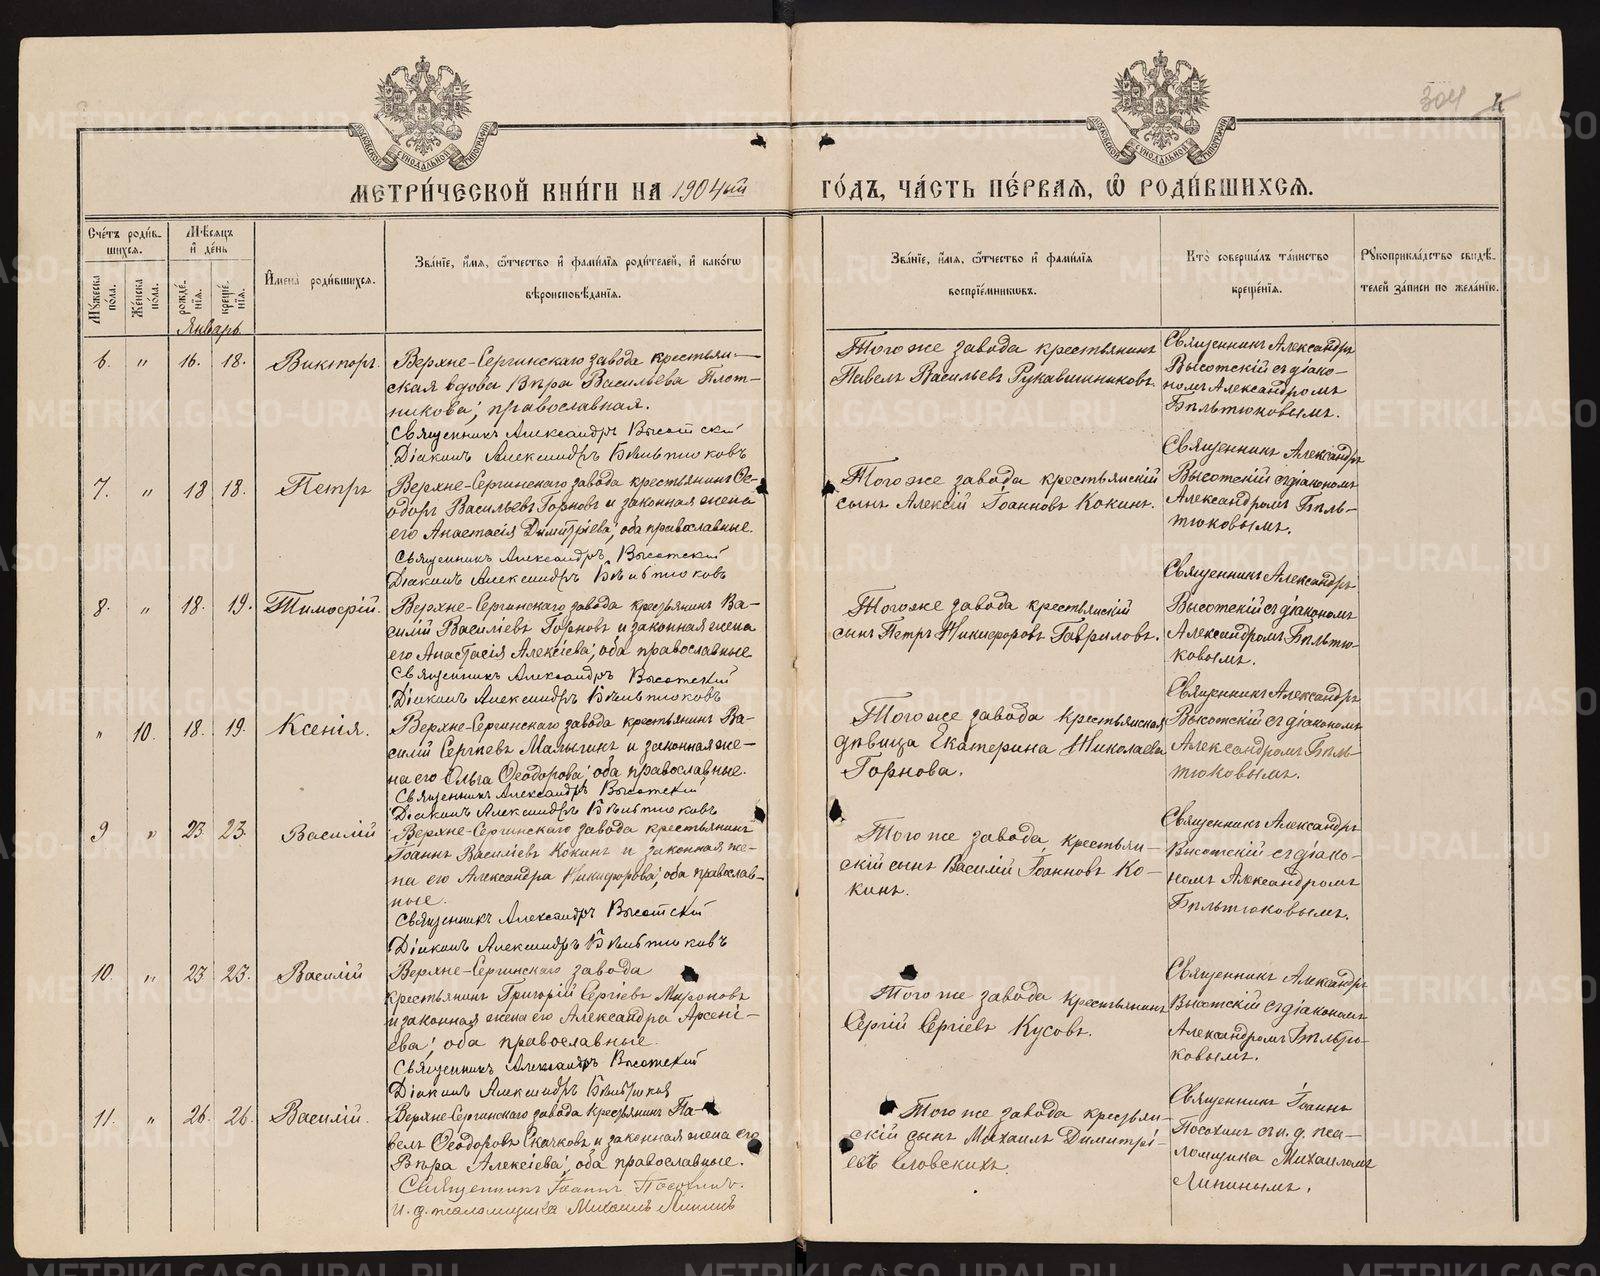 304
МЕТРИ́ЧЕСКОЙ КНИ́ГИ НА 1904ый ГО́ДЪ, ЧА́СТЬ ПЕ́РВАЯ, Ѡ РОДИ́ВШИХСЯ.
Сче́тъ роди́в-
шихся.
Му́жеска по́ла.
Же́нска по́ла.
Мѣ́сяцъ
и де́нь
рожде́-
нія.
креще́-
нія.
Имена̀ роди́вшихся.
Зва́ніе, и́мя, о́тчество и фами́лія роди́телей, и како́гѡ
вѣроисповѣ́данія.
Зва́ніе, и́мя, о́тчество и фами́лія
воспріе́мникѡвъ.
Кто̀ соверша́лъ та́инство
креще́нія.
Рукоприкла́дство свидѣ́-
телей за́писи по жела́нію.
Январь
6. " 16. 18. Викторъ.
Верхне-Сергинскаго завода крестьян-
ская вдова Вѣра Васильева Плот-
никова; православная.
Священникъ Александръ Высотский
Діаконъ Александръ Бѣльтюковъ
Того же завода крестьянинъ
Павелъ Васильевъ Рукавишниковъ.
Священникъ Александръ
Высотскій съ діако-
номъ Александромъ
Бѣльтюковымъ.
7. " 18 18. Петръ
Верхне-Сергинскаго завода крестьянинъ Ѳе-
одоръ Васильевъ Горновъ и законная жена
его Анастасія Димитріева; оба православные.
Священникъ Александръ Высотский
Діаконъ Александръ Бѣльтюковъ
Того же завода крестьянскій
сынъ Алексій Іоанновъ Кокинъ.
Священникъ Александръ
Высотскій съ діакономъ
Александромъ Бѣль-
тюковымъ.
8. " 18. 19. Тимоѳій.
Верхне-Сергинскаго завода крестьянинъ Ва-
силій Василіевъ Горновъ и законная жена
его Анастасія Алексіева; оба православные
Священникъ Александръ Высотский
Діаконъ Александръ Бѣльтюковъ
Того же завода крестьянскій
сынъ Петръ Никифоровъ Гавриловъ.
Священникъ Александръ
Высотскій съ діакономъ
Александромъ Бѣльтю-
ковымъ.
" 10. 18. 19. Ксенія.
Верхне-Сергинскаго завода крестьянинъ Ва-
силій Сергѣевъ Малыгинъ и законная же-
на его Ольга Ѳеодорова; оба православные.
Священникъ Александръ Высотский
Діаконъ Александръ Бѣльтюковъ
Того же завода крестьянская
дѣвица Екатерина Николаева
Горнова.
Священникъ Александръ
Высотскій съ діакономъ
Александромъ Бѣль-
тюковымъ.
9 " 23 23. Василій
Верхне-Сергинскаго завода крестьянинъ
Іоаннъ Василіевъ Кокинъ и законная же-
на его Александра Никифорова; оба православ-
ные.
Священникъ Александръ Высотский
Діаконъ Александръ Бѣльтюковъ
Того же завода, крестьян-
скій сынъ Василій Іоанновъ Ко-
кинъ.
Священникъ Александръ
Высотскій съ діако-
номъ Александромъ
Бѣльтюковымъ.
10. " 23 23. Василій
Верхне-Сергинскаго завода
крестьянинъ Григорій Сергіевъ Мироновъ
и законная жена его Александра Арсені-
ева; оба православные.
Священникъ Александръ Высотский
Діаконъ Александръ
Того же завода крестьянинъ
Сергій Сергіевъ Кусовъ.
Священникъ Александръ
Высотскій съ діакономъ
Александромъ Бѣльтю-
ковымъ.
11. " 26. 26. Василій.
Верхне-Сергинскаго завода крестьянинъ Па-
велъ Ѳеодоровъ Скачковъ и законная жена его
Вѣра Алексіева; оба православные.
Священникъ Іоаннъ Посохинъ.
и. д. псаломщика Михаилъ Липинъ
Того же завода крестьян-
скій сынъ Михаилъ Димитрі-
евъ Словскихъ.
Священникъ Іоаннъ
Посохинъ съ и. д. пса-
ломщика Михаиломъ
Липинымъ.